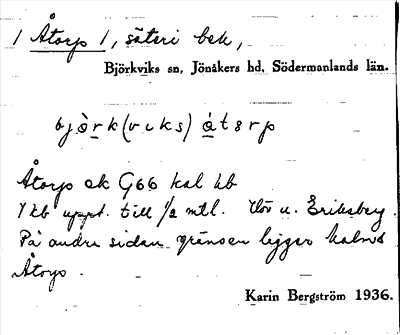 1 Åtorp 1, säteri bek,
Björkviks sn, Jönåkers hd, Södermanlands län.
bjò̱rk(viks) á̱tsrp
Åtorp ek G66 kal kb
1 kb uppt. till 1/2 mtl. Hör u. Eriksberg.
På andra sidan gränsen ligger halvö
Åtorp.
Karin Bergström 1936.